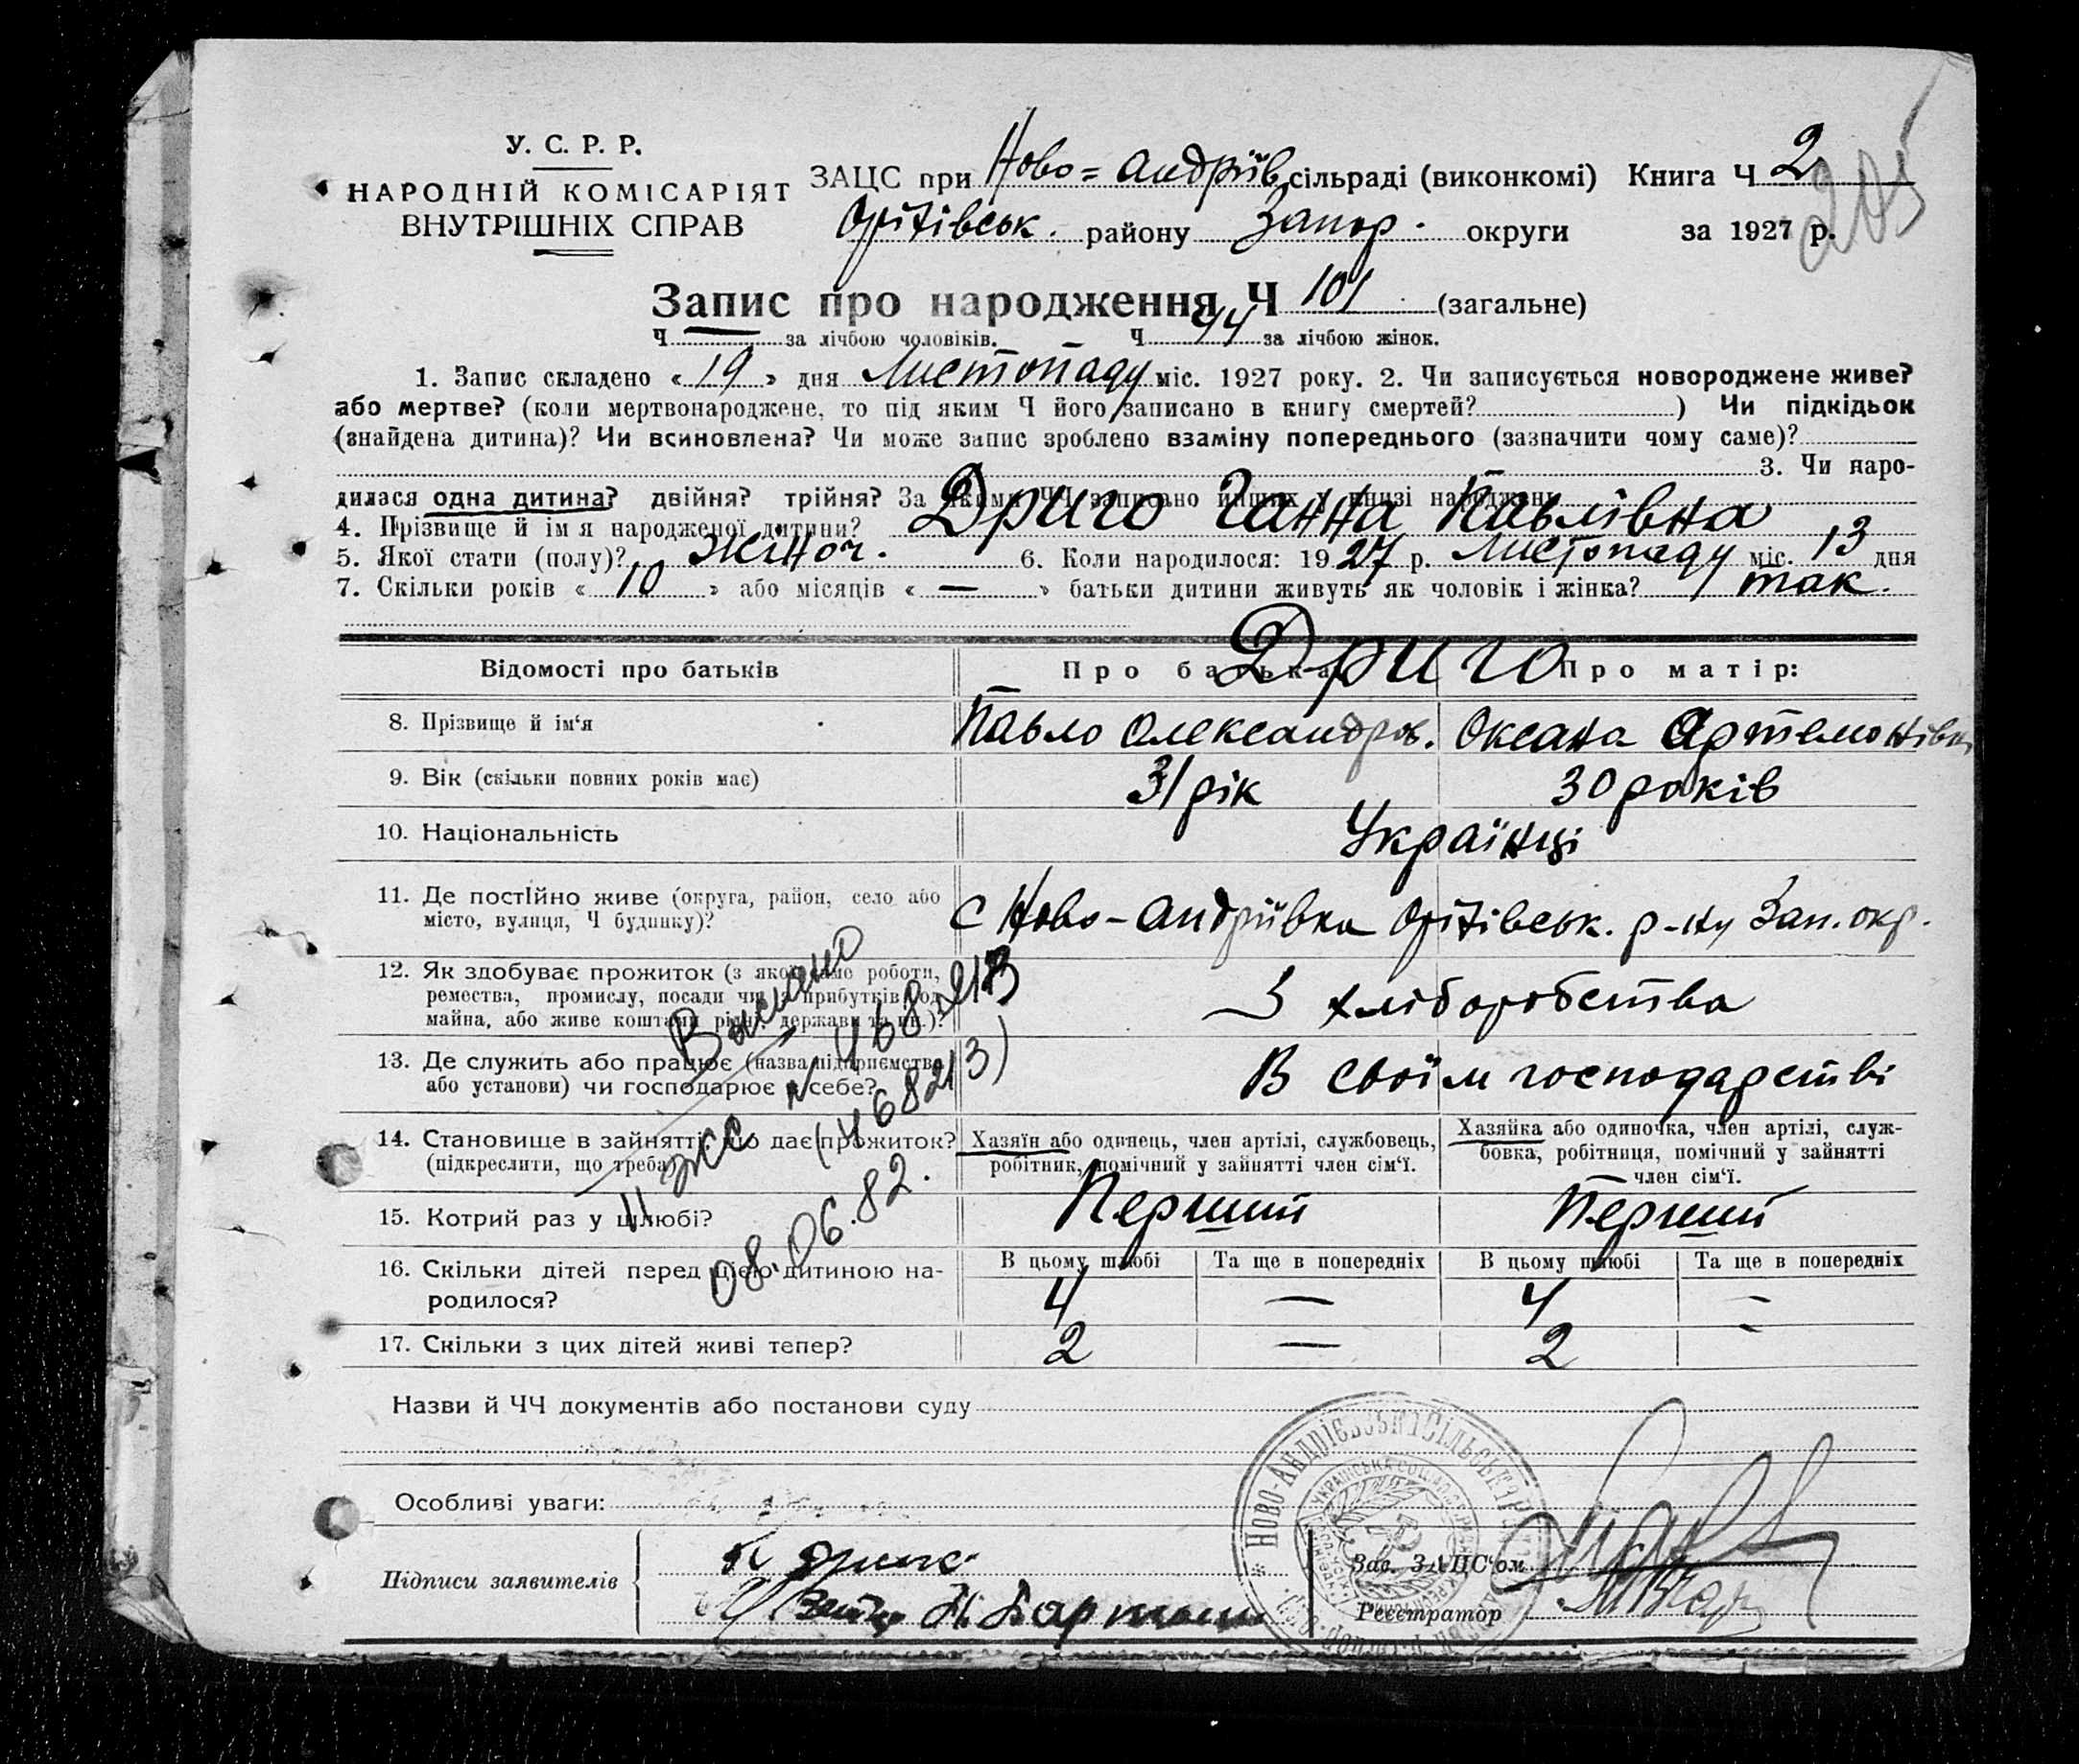 У. С. Р. Р.
НАРОДНІЙ КОМІСАРІЯТ
ВНУТРІШНІХ СПРАВ
ЗАЦС при Ново=Андріїв. сільраді (виконкомі) Книга Ч 2
Оріхівськ. району Запор. округи за 1927 р.
205
Запис про народження Ч 101 (загальне)
Ч — за лічбою чоловіків. Ч 44 за лічбою жінок.
1. Запис складено « 19 » дня Листопаду міс. 1927 року. 2. Чи записується новороджене живе?
або мертве? (коли мертвонароджене, то під яким Ч його записано в книгу смертей? ) Чи підкідьок
(знайдена дитина)? Чи всиновлена? Чи може запис зроблено взаміну попереднього (зазначити чому саме)?
3. Чи наро-
дилася одна дитина? двійня? трійня? За якими ЧЧ записано инших у книзі народжень
4. Прізвище й ім я народженої дитини? Дриго Ганна Павлівна
5. Якої стати (полу)? жіноч. 6. Коли народилося: 1927 р. Листопаду міс. 13 дня
7. Скільки років « 10 » або місяців « — » батьки дитини живуть як чоловік і жінка? так.
Відомості про батьків Про батька Про матір:
Дриго
8. Прізвище й ім‘я Павло Олександров. Оксана Артемонівн
9. Вік (скільки повних років має) 31 рік 30 років
10. Національність Українці
11. Де постійно живе (округа, район, село або
місто, вулиця, Ч будинку)? с Ново-Андріївка Оріхівськ. р-ну Зап. окр.
12. Як здобуває прожиток (з якої саме роботи,
ремества, промислу, посади чи з прибутків од
майна, або живе коштами рідні, держави та ин.)? З хліборобства
13. Де служить або працює (назва підприємства
або установи) чи господарює в себе? В своїм господарстві
14. Становище в зайнятті, що дає прожиток?
(підкреслити, що треба)
Хазяїн або одинець, член артілі, службовець,
робітник, помічний у зайнятті член сім‘ї.
Хазяйка або одиночка, член артілі, служ-
бовка, робітниця, помічний у зайнятті
член сім‘ї.
15. Котрий раз у шлюбі? Перший Перший
В цьому шлюбі Та ще в попередніх В цьому шлюбі Та ще в попередніх
16. Скільки дітей перед цією дитиною на-
родилося? 4 — 4 —
17. Скільки з цих дітей живі тепер? 2 — 2 -
08.06.82.
Назви й ЧЧ документів або постанови суду
Особливі уваги:
Підписи заявителів
П Дриго
Зав. ЗАЦС‘ом
Реєстратор
НОВО-АНДРІЄВСЬКА СІЛЬСЬКА РАДА